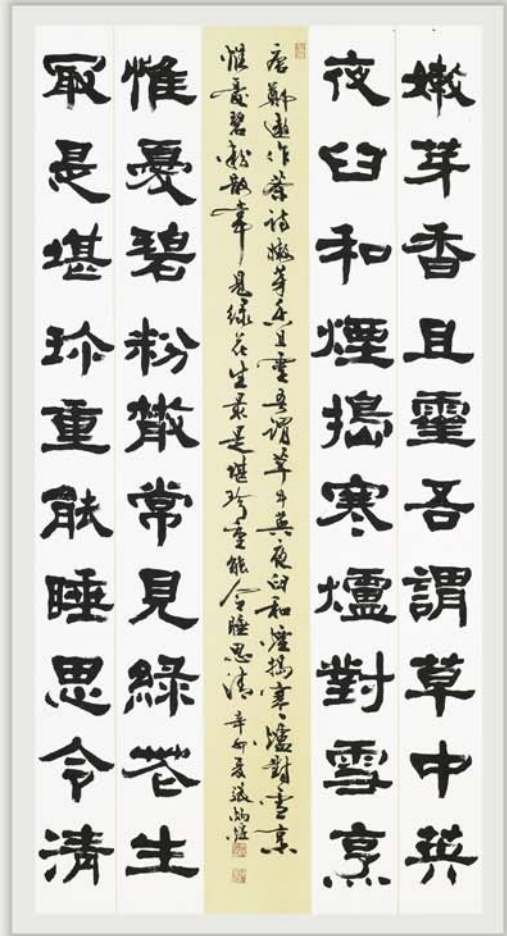 嫩芽香且靈吾謂草中英
夜臼和煙搗寒爐對雪烹
唐鄭遨作茶詩嫩芽香且靈吾謂草中英夜臼和煙搗寒爐對雪烹
惟憂碧粉散常見綠花生最是堪珍重能令睡思清辛卯夏張炳煌
惟憂碧粉散常見綠花生
冣是堪珍重能睡思令清